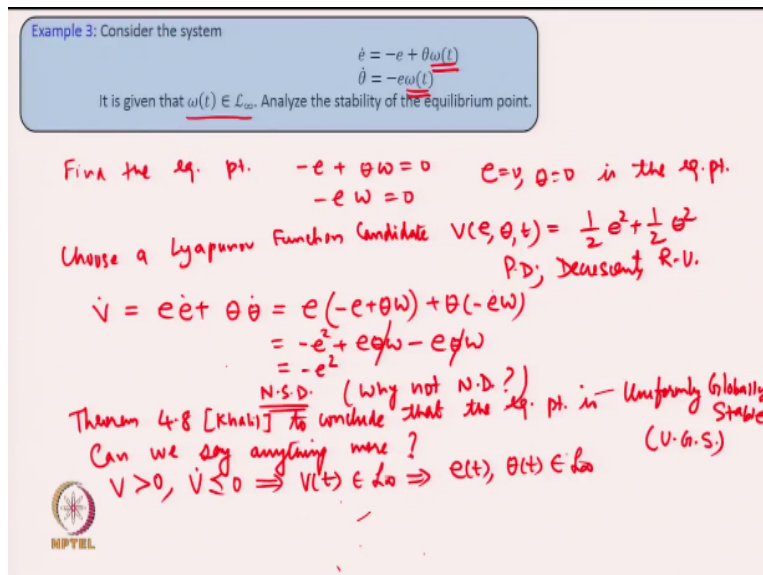 Example 3: Consider the system
ė = −e + θω(t)
θ̇ = −eω(t)
It is given that ω(t) ∈ ℒ∞. Analyze the stability of the equilibrium point.
Find the eq. pt. -e + θω = 0 e=0, θ=0 is the eq. pt.
-e ω = 0
Choose a Lyapunov Function Candidate V(e, θ, t) = 1/2 e² + 1/2 θ²
P.D; Decrescent, R.U.
V̇ = eė + θθ̇ = e(-e+θω) + θ(-eω)
= -e² + eθω - eθω
= -e²
N.S.D. (Why not N.D.?)
Theorem 4.8 [Khalil] to conclude that the eq. pt. is — Uniformly Globally Stable
(U.G.S.)
Can we say anything more?
V > 0, V̇ ≤ 0 ⇒ V(t) ∈ ℒ∞ ⇒ e(t), θ(t) ∈ ℒ∞
NPTEL